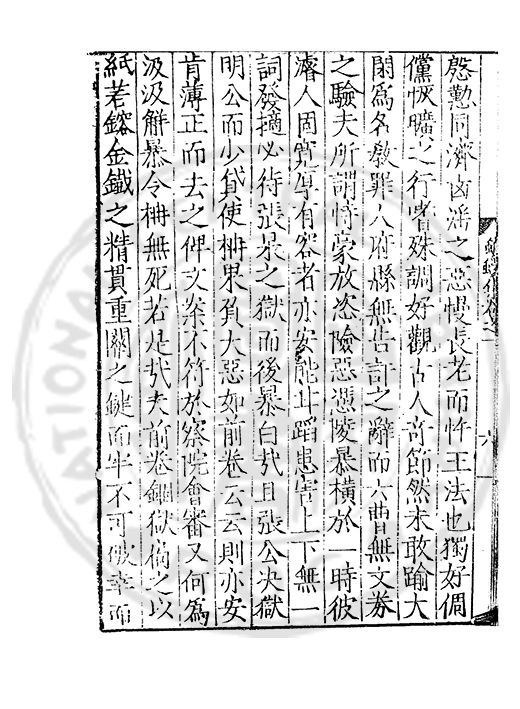 慇懃同濟卤滛之惡慢長老而忤王法也獨好倜
儻恢曠之行嗜殊調好觀古人竒節然未敢踰大
閑爲名教罪人府縣無告訐之辭而六曹無文券
之驗夫所謂恃豪放恣險惡憑陵暴橫於一時彼
濬人固寛厚有容者亦安能甘蹈患害上下無一
詞發摘必待張杲之獄而後暴白㦲且張公決獄
明公而少貸使柟果負大惡如前卷云云則亦安
肯薄正而去之俾文案不符於察院會審又何爲
汲汲觧暴令柟無死若是㦲夫前卷錮獄偽之以
紙若鎔金鐡之精貫重關之鍵而牢不可僥幸而
六